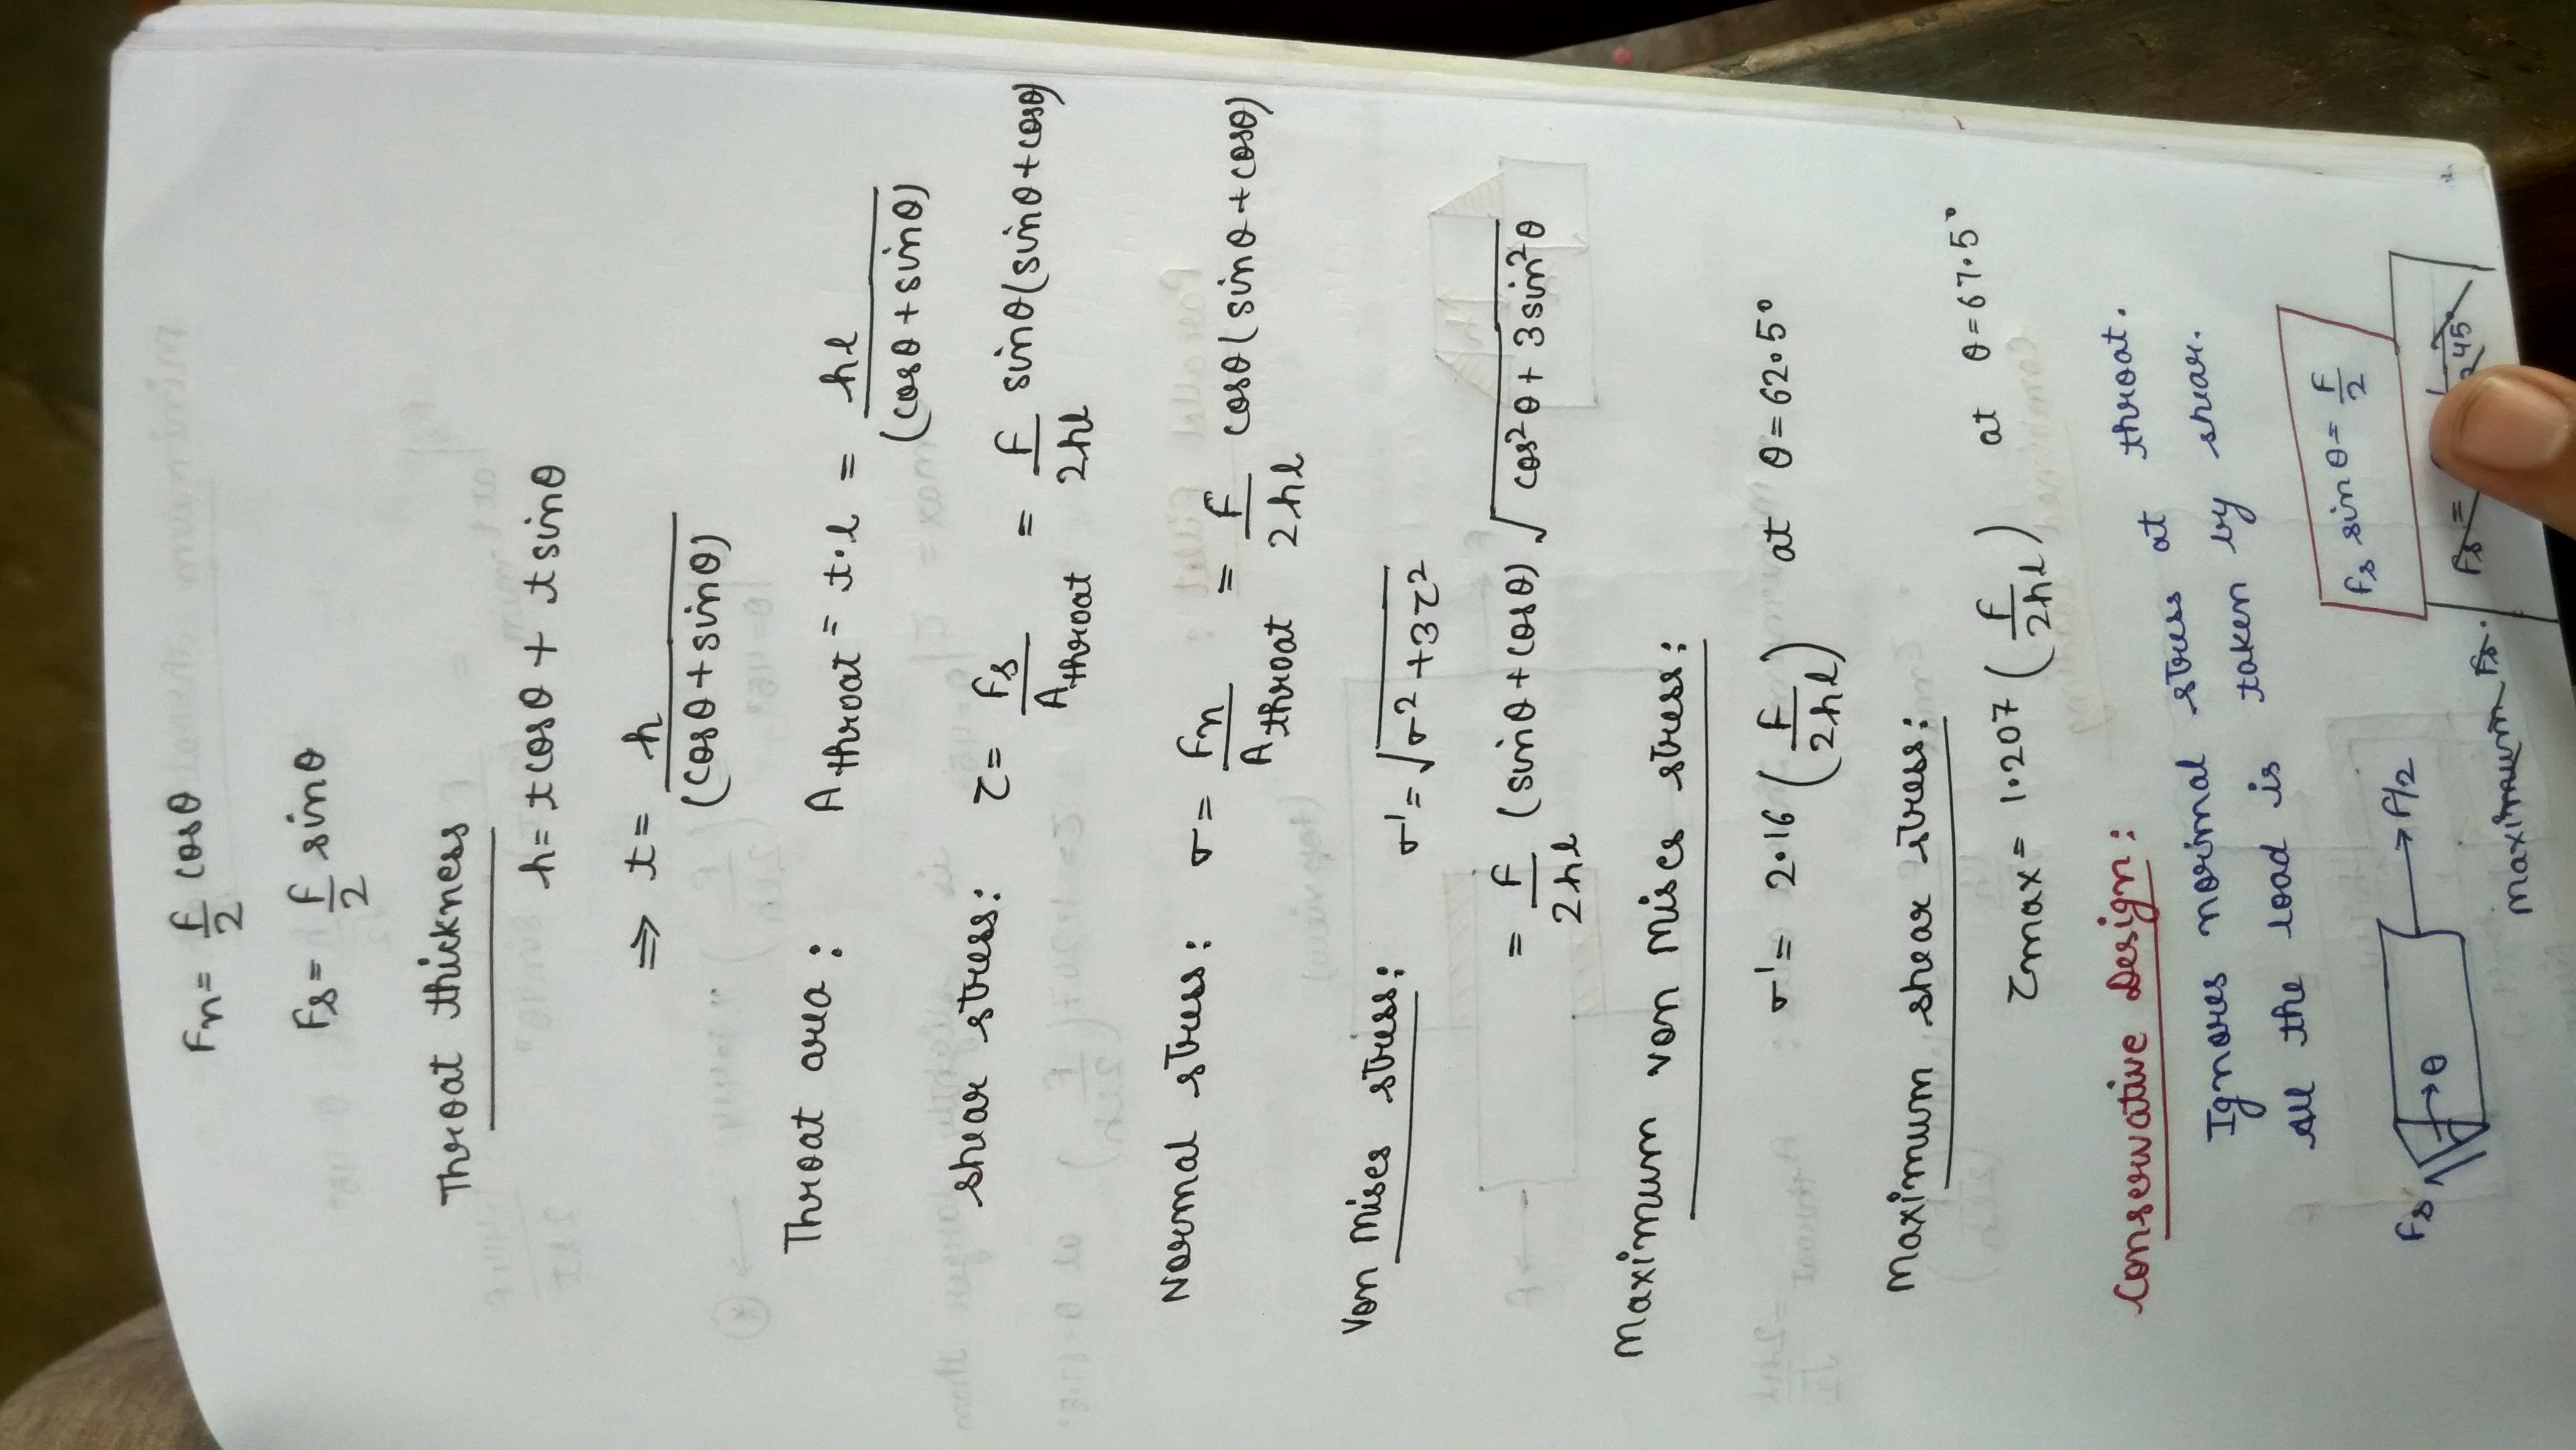 Fn = F/2 cosθ
Fs = F/2 sinθ
Throat thickness
h = t cosθ + t sinθ
⇒ t = h/(cosθ + sinθ)
Throat area : A throat = t·l = hl/(cosθ + sinθ)
shear stress : τ = Fs/A throat = F/2hl sinθ(sinθ + cosθ)
Normal stress : σ = Fn/A throat = F/2hl cosθ(sinθ + cosθ)
Von Mises stress : σ' = √(σ² + 3τ²)
= F/2hl (sinθ + cosθ) √(cos²θ + 3 sin²θ)
Maximum von Mises stress :
σ' = 2.16 (F/2hl) at θ = 62.5°
Maximum shear stress :
τmax = 1.207 (F/2hl) at θ = 67.5°
Conservative Design :
Ignores normal stress at throat.
All the load is taken by shear.
Fs sinθ = F/2
Fs θ F/2
maximum Fs. Fs = 45°